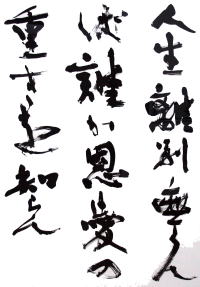 人生離別無くん
ば誰か恩愛の
重きを知らん